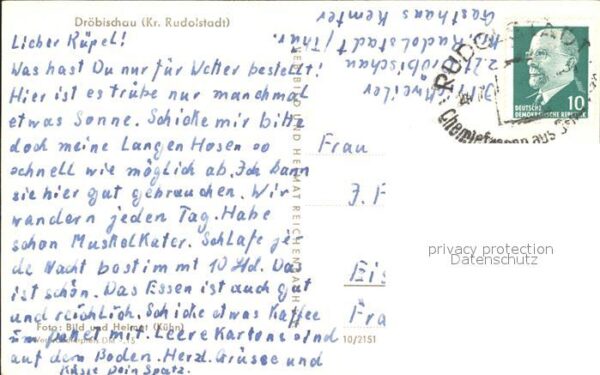 Dröbischau (Kr. Rudolstadt)
Lieber Rüpel!
Was hast Du nur für Wetter bestellt!
Hier ist es trübe nur manchmal
etwas Sonne. Schicke mir bitte
doch meine Langen Hosen so
schnell wie möglich ab. Ich kann
sie hier gut gebrauchen. Wir
wandern jeden Tag. Habe
schon Muskelkater. Schlafe je-
de Nacht bestimmt 10 Std. Das
ist schön. Das Essen ist auch gut
und reichlich. Schicke etwas Kaffee
im paket mit. Leere Kartons sind
auf dem Boden. Herzl. Grüsse und
Küsse Dein Spatz.
Foto: Bild und Heimat (Kühn)
10/2151
BILD UND HEIMAT REICHENBACH
z.Zt. Dröbischau
Rudolstadt/Thür
Gasthaus Kemter
RUDOLSTADT
Chemiefasern aus
DEUTSCHE
DEMOKRATISCHE REPUBLIK
10
Frau
J. F
Eis
Fra
privacy protection
Datenschutz